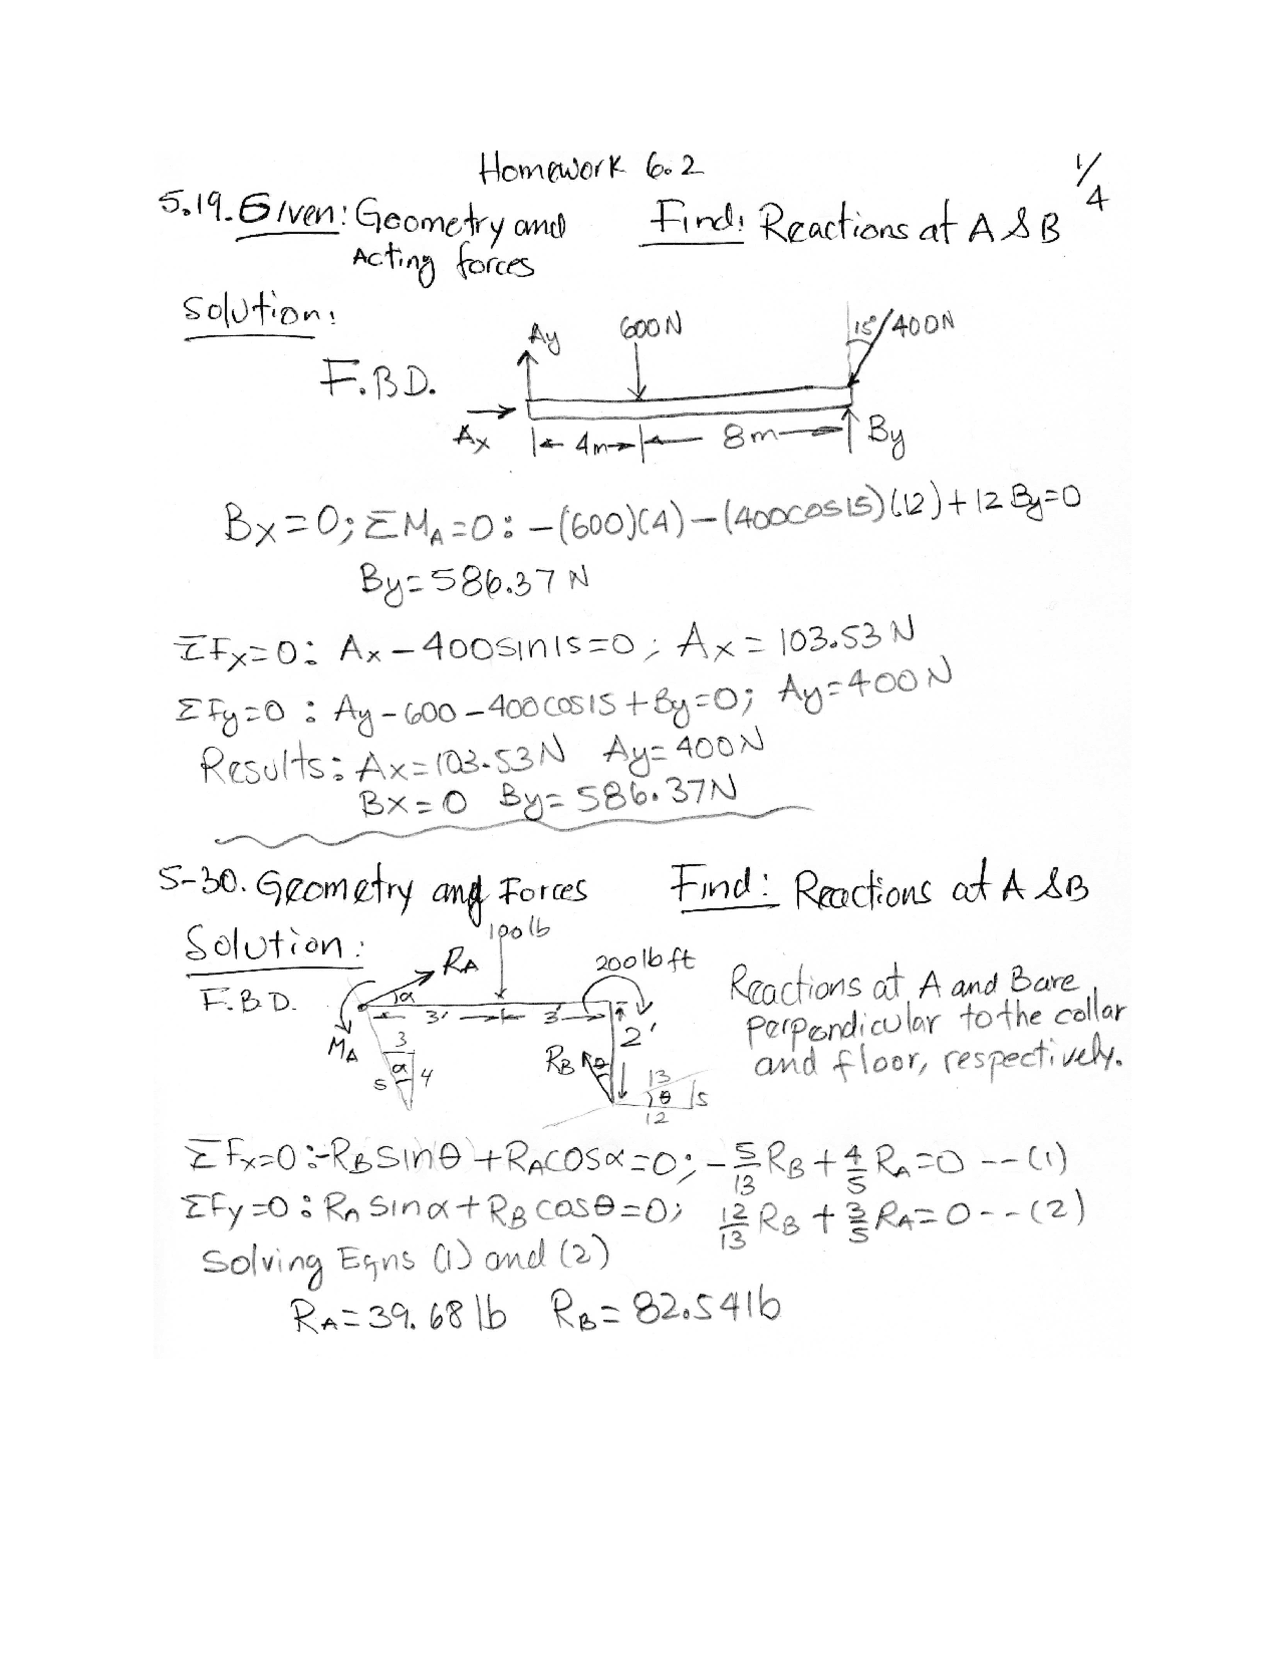 Homework 6.2
1/4
5.19. Given: Geometry and Find: Reactions at A & B
Acting forces
Solution:
Ay 600N 15° 400N
F.B.D.
Ax 4m 8m By
Bx=0; ΣMA=0: -(600)(4)-(400cos15)(12)+12By=0
By=586.37 N
ΣFx=0: Ax-400sin15=0; Ax=103.53N
ΣFy=0: Ay-600-400cos15+By=0; Ay=400N
Results: Ax=103.53N Ay=400N
Bx=0 By=586.37N
5-30. Geometry and Forces Find: Reactions at A & B
Solution: 100lb
RA 200lbft
F.B.D. α
3' 3'
MA 2'
3
α
5 4
RB θ
13
θ 5
12
Reactions at A and B are
perpendicular to the collar
and floor, respectively.
ΣFx=0:-RBSinθ+RAcosα=0; -5/13 RB+4/5 RA=0 --(1)
ΣFy=0: RA Sinα+RB cosθ=0; 12/13 RB+3/5 RA=0--(2)
Solving Eqns (1) and (2)
RA=39.68 lb RB=82.54lb